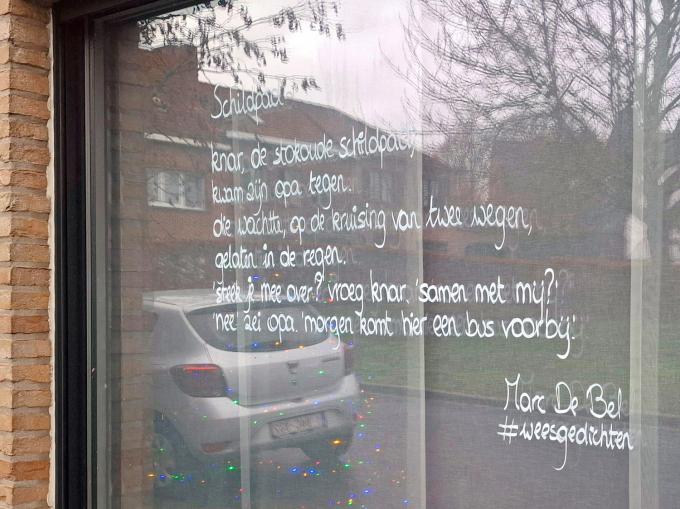 Schildpad
knar, de stokoude schildpad,
kwam zijn opa tegen.
die wachtte, op de kruising van twee wegen,
gelaten in de regen.
'steek je mee over?' vroeg knar, 'samen met mij?'
'nee' zei opa. 'morgen komt hier een bus voorbij.'
Marc De Bel
#weesgedichten